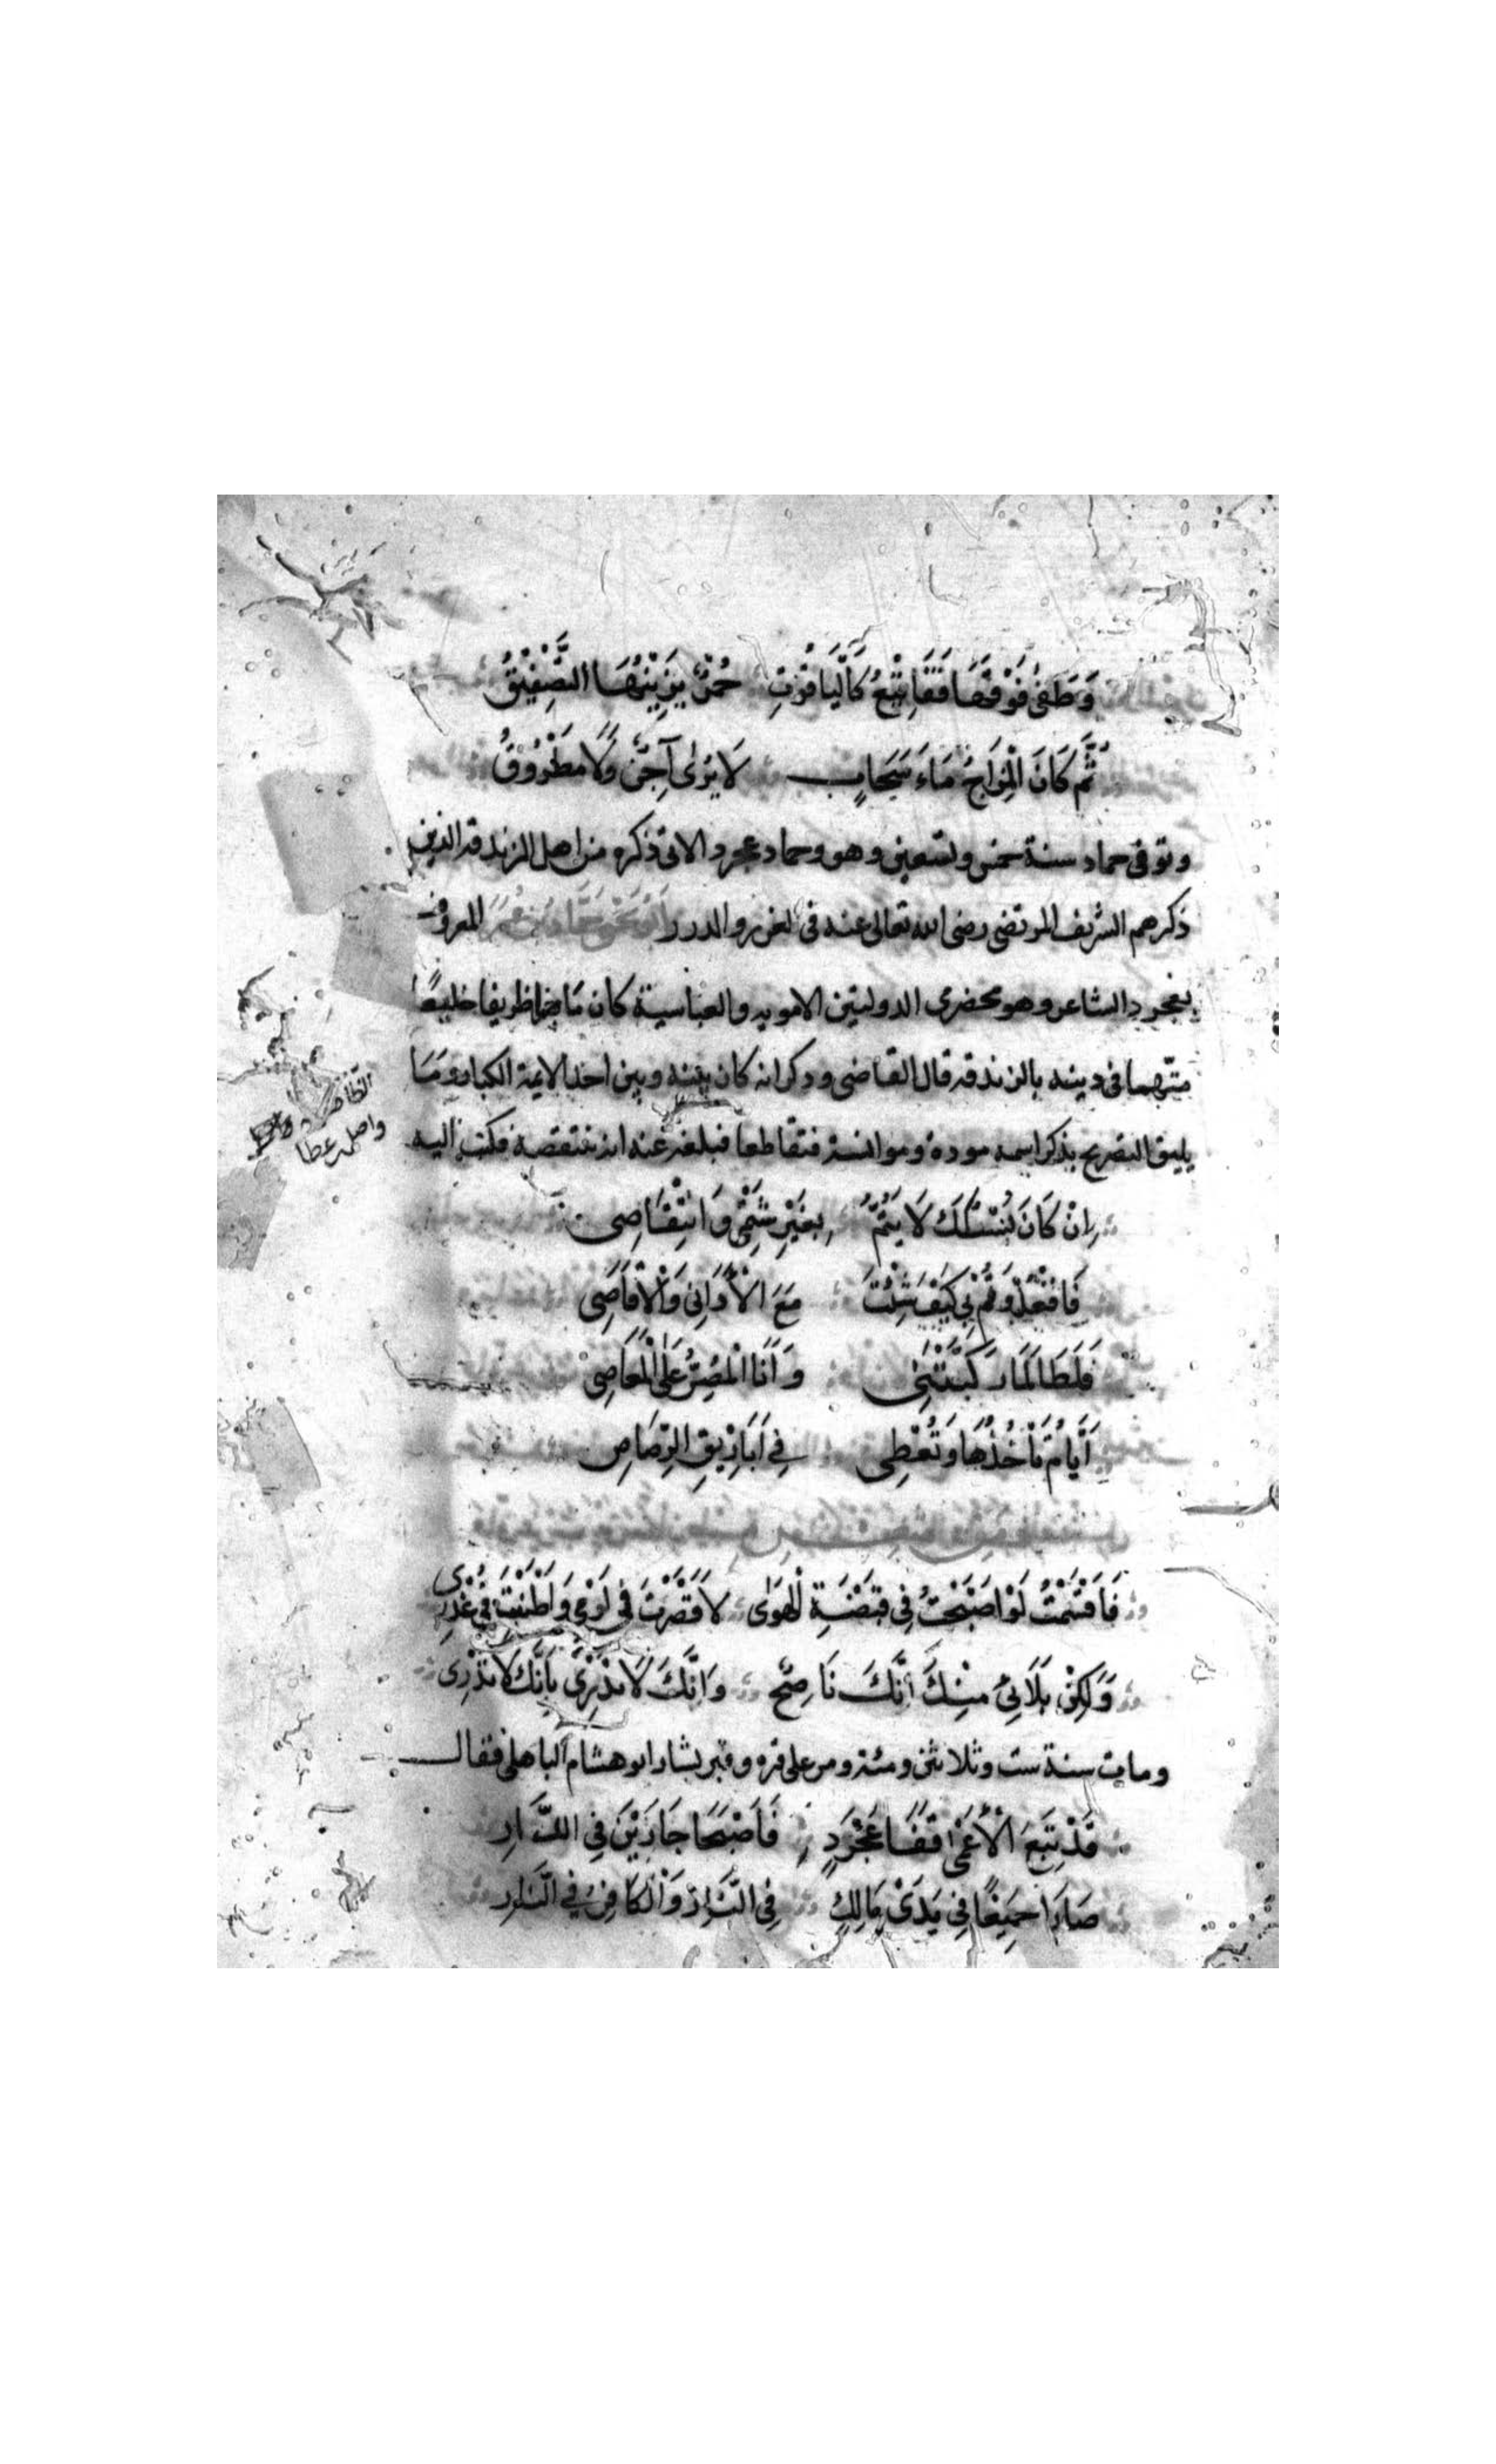 وَطَفَى فَوْقَهَا فَقَاقِيْعُ كَالْيَاقُوْتِ حُمْرٌ يَزِيْنُهَا التَّصْفِيْقُ
ثُمَّ كَانَ الْمِزَاجُ مَاءَ سَحَابٍ لَا يُرٰى آجِنٌ وَلَا مَطْرُوْقُ
وتوفى حماد سنة خمس وتسعين وهو وحماد عجرد الاتى ذكره من اهل الزندقه الذين
ذكرهم الشريف المرتضى رضى الله تعالى عنه فى الغرر والدرر حَمَّاد بن عُمَرَ المعروف
بعجرد الشاعر وهو مخضرى الدولتين الامويه والعباسية كان مَاجنا ظريفا خليعًا
متّهما فى دينه بالزندقه قال القاضى وذكر انه كان بينه وبين احد الايمة الكبار ومَا
يليق التصريح بذكر اسمه مودة وموانسة فتقاطعا فبلغه عنه انه ينتقصه فكتب اليه
اِنْ كَانَ نُسْكُكَ لَا يَتُمُّ بِغَيْرِ شَتْمِى وَانْتِقْاصِى
فَاقْعُدْ وَقُمْ بِى كَيْفَ شِئْتَ مَعَ الْاَدَانِى وَالْاَقَاصِى
فَلَطَالَمَا زَكَّيْتَنِى وَاَنَا الْمُصِرُّ عَلَى الْمَعَاصِى
اَيَّامُ تَأْخُذُهَا وَتُعْطِى فِى اَبَارِيْقِ الرِّصَاصِ
فَاَقْسَمْتُ لَوْ اَصْبَحْتُ فِى قَبْضَةِ الْهَوٰى لَاَقْصَرْتَ فِى لَوْمِى وَاَطْنَبْتَ فِى عُذْرِى
وَلٰكِنْ بَلَائِىْ مِنْكَ اَنَّكَ نَاصِحٌ وَاِنَّكَ لَا تَدْرِىْ بِاَنَّكَ لَا تَدْرِى
ومات سنة ست وثلاثين ومئة ومر على قبره وقبر بشار ابو هشام الباهلى فقال
قَدْ تَبِعَ الْاَعْمٰى قَفَا عَجْرَدٍ فَاَصْبَحَا جَارَيْنَ فِى الدَّارِ
صَارَا جَمِيْعًا فِى يَدَىْ مَالِكٍ فِى النَّارِ وَالْكَافِرُ فِى النَّارِ
واصل بن عطا